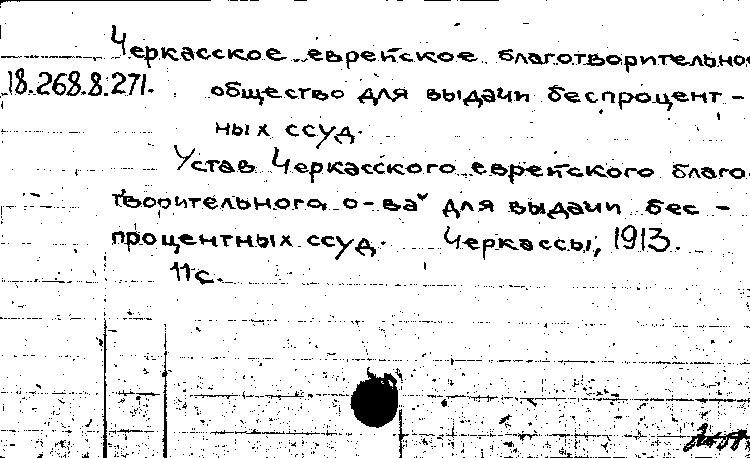 Черкасское еврейское благотворительно
18.268.8.271. общество для выдачи беспроцент-
ных ссуд.
Устав Черкасского еврейского благо
творительного о-ва для выдачи бес-
процентных ссуд. Черкассы, 1913.
11с.